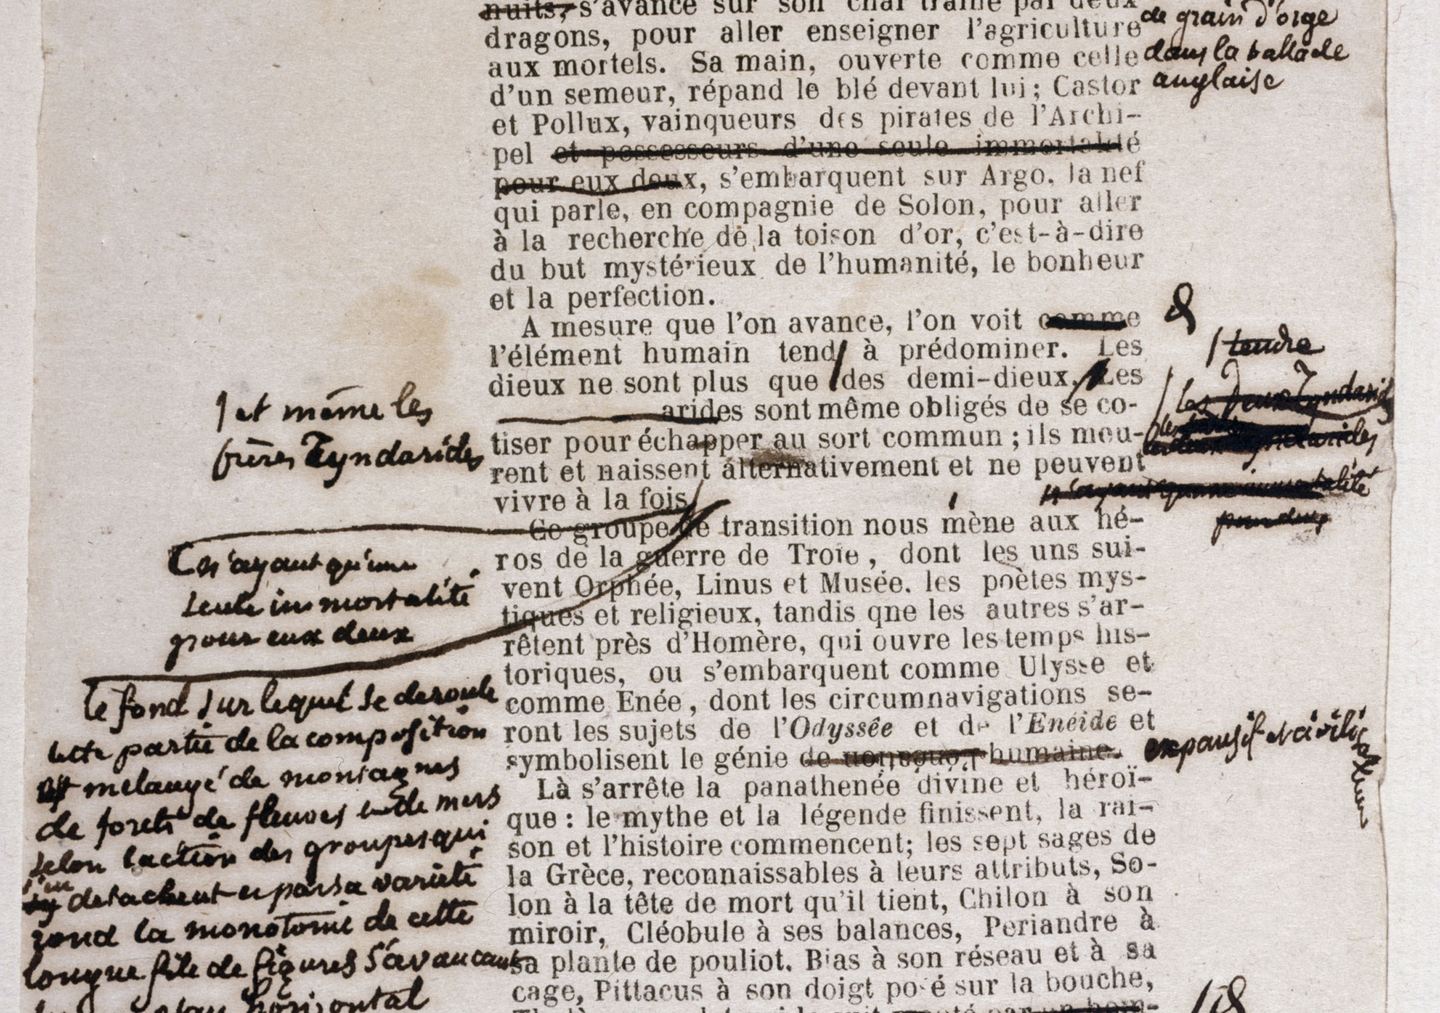 nuits, s'avance sur son char traîné par deux
dragons, pour aller enseigner l'agriculture
aux mortels. Sa main, ouverte comme celle
d'un semeur, répand le blé devant lui; Castor
et Pollux, vainqueurs des pirates de l'Archi-
pel et possesseurs d'une seule immortalité
pour eux deux, s'embarquent sur Argo, la nef
qui parle, en compagnie de Solon, pour aller
à la recherche de la toison d'or, c'est-à-dire
du but mystérieux de l'humanité, le bonheur
et la perfection.
A mesure que l'on avance, l'on voit comme
l'élément humain tend à prédominer. Les
dieux ne sont plus que des demi-dieux. Les
arides sont même obligés de se co-
tiser pour échapper au sort commun; ils meu-
rent et naissent alternativement et ne peuvent
vivre à la fois
Ce groupe de transition nous mène aux hé-
ros de la guerre de Troie, dont les uns sui-
vent Orphée, Linus et Musée. les poètes mys-
tiques et religieux, tandis qne les autres s'ar-
rêtent près d'Homère, qui ouvre les temps his-
toriques, ou s'embarquent comme Ulysse et
comme Enée, dont les circumnavigations se-
ront les sujets de l'Odyssée et de l'Enéide et
symbolisent le génie de humaine.
Là s'arrête la panathenée divine et héroï-
que: le mythe et la légende finissent, la rai-
son et l'histoire commencent; les sept sages de
la Grèce, reconnaissables à leurs attributs, So-
lon à la tête de mort qu'il tient, Chilon à son
miroir, Cléobule à ses balances, Periandre à
sa plante de pouliot. Bias à son réseau et à sa
cage, Pittacus à son doigt posé sur la bouche,
de grain d'orge
dans la ballade
anglaise
tendre
les deux Tyndarides
n'ayant qu'une immortalité
pour deux
expansif et civilisateur
et même les
frères Tyndarides
n'ayant qu'une
seule immortalité
pour eux deux
le fond sur lequel se deroule
cette partie de la composition
est melangé de montagnes
de forets de fleuves et de mers
selon l'action des groupes qui
s'en detachent et par sa varieté
rond la monotomie de cette
longue file de figures s'avancant
horizontal